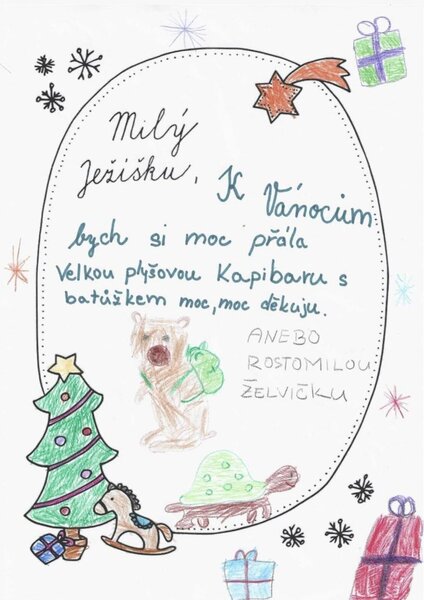 Milý
Ježíšku, K Vánocům
bych si moc přála
Velkou plyšovou Kapibaru s
batůškem moc, moc děkuju.
ANEBO
ROSTOMILOU
ŽELVIČKU